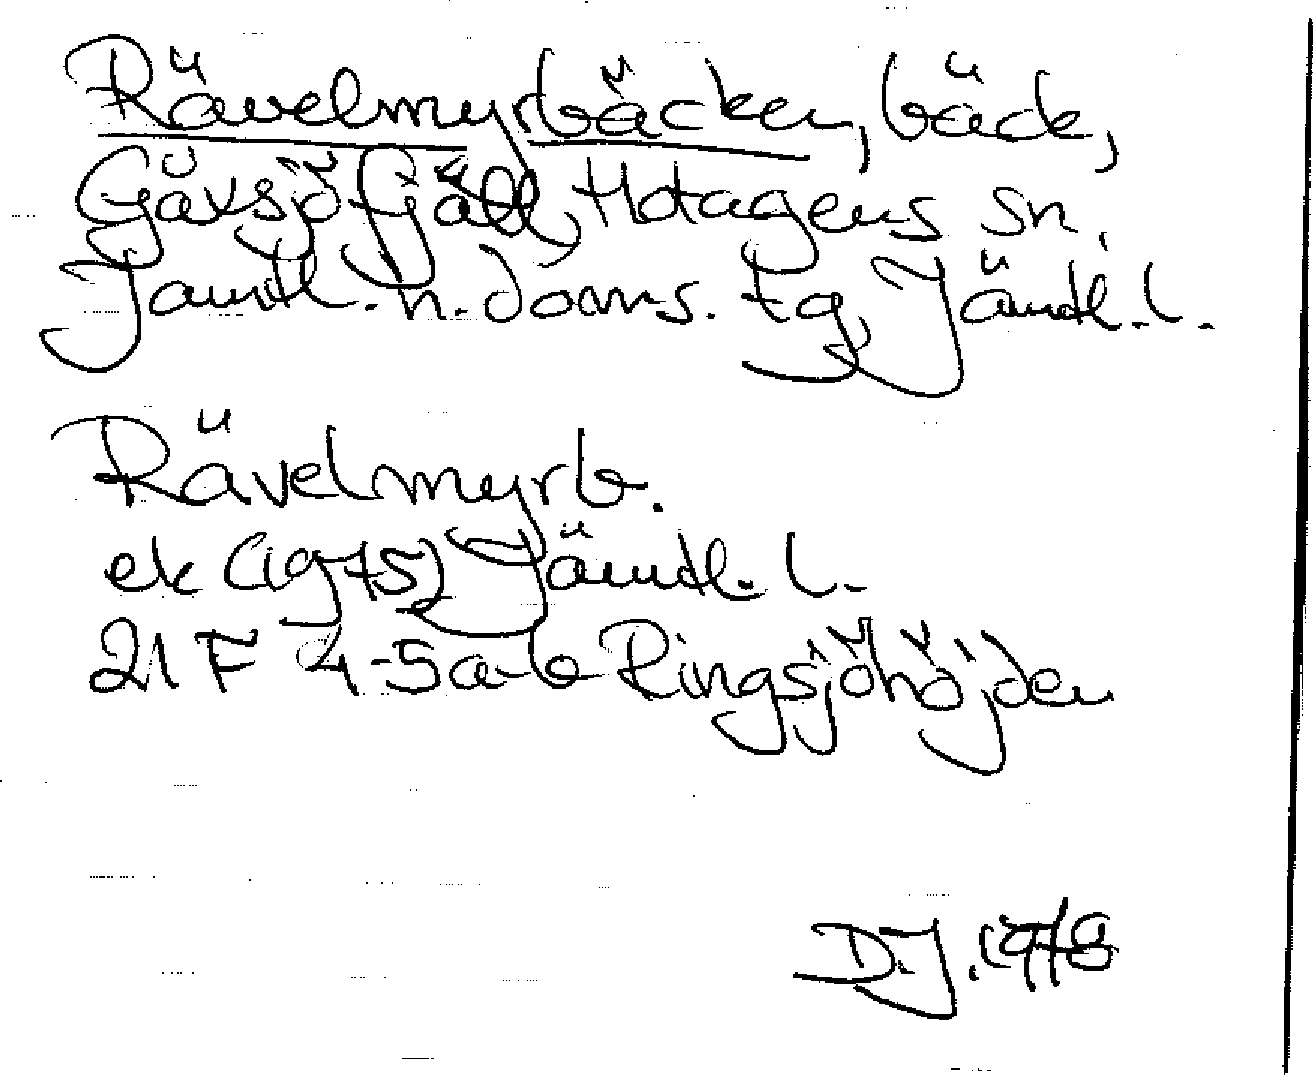 Rävelmyrbäcken, bäck,
Gåxsjöfjäll, Hotagens sn,
Jämtl. n. doms. tg, Jämtl. l.
Rävelmyrb.
ek (1975) Jämtl. l.
21 F 4-5a-b Ringsjöhöjden
D.J. 1978